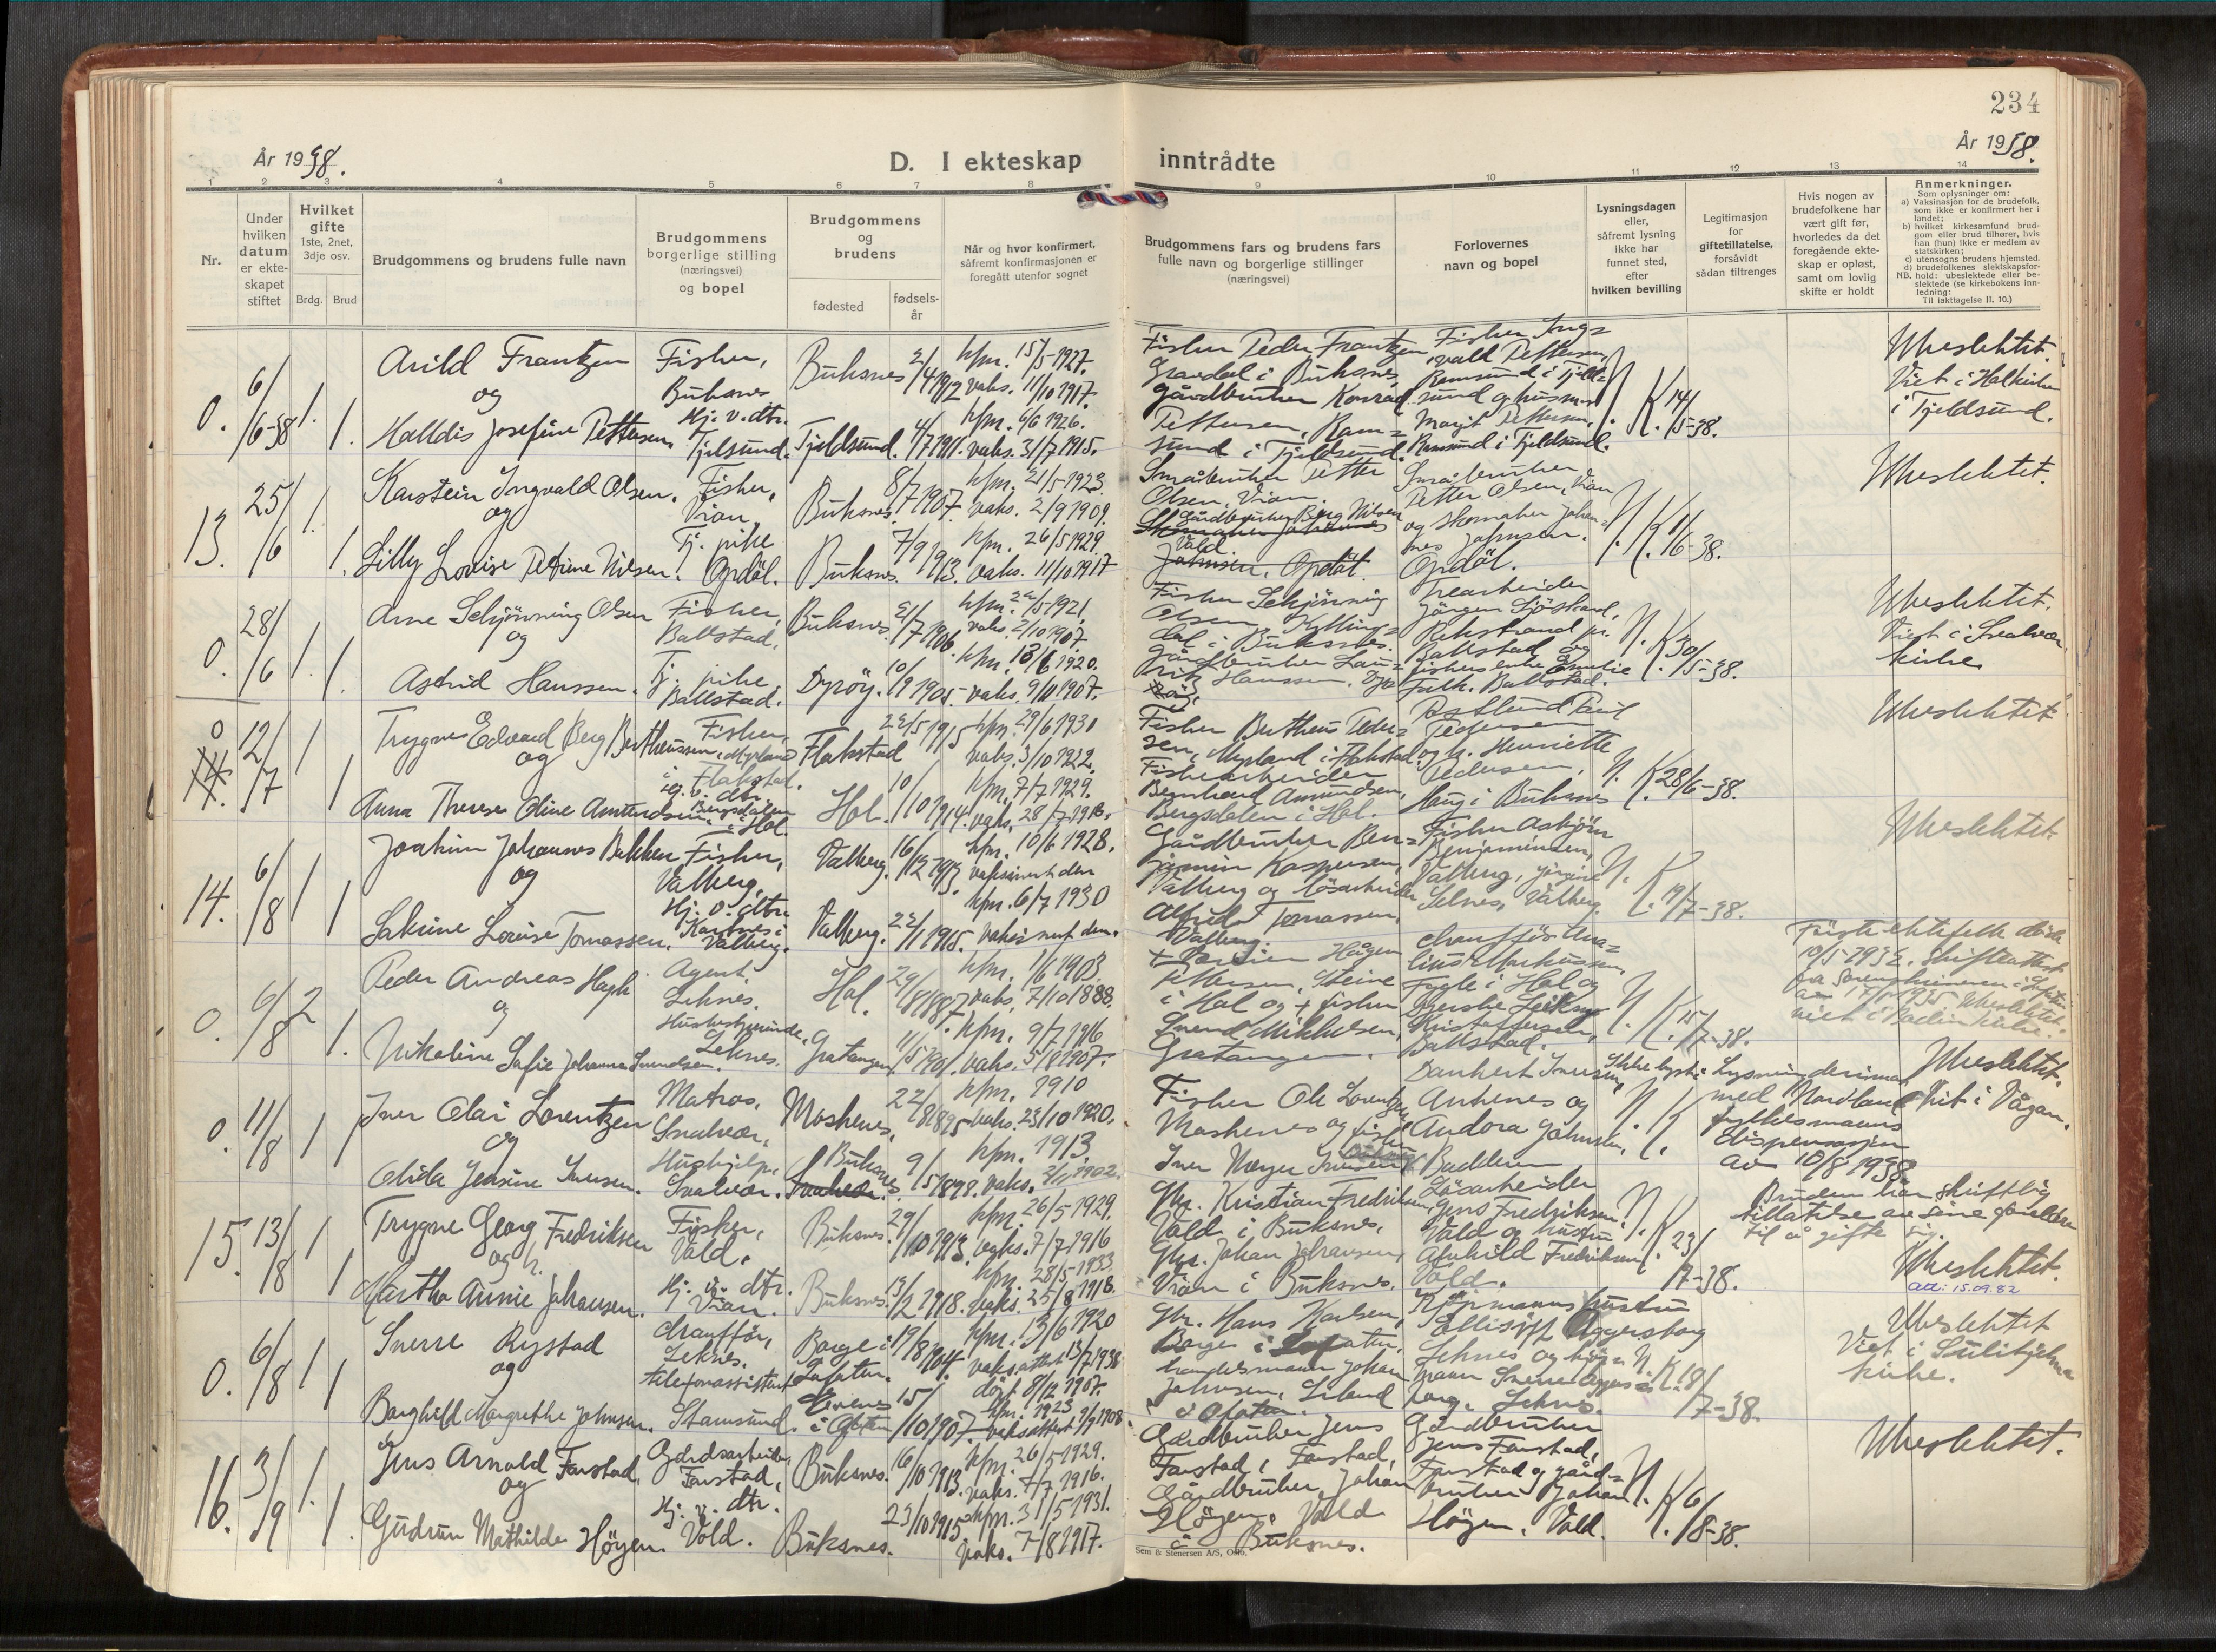 234
År 1938.
År 1938.
D. I ekteskap inntrådte
1 2 3 4 5 6 7 8 9 10 11 12 13 14
Nr.
Under hvilken datum er ekteskapet stiftet
Hvilket gifte 1ste, 2net, 3dje osv.
Brdg. Brud
Brudgommens og brudens fulle navn
Brudgommens borgerlige stilling (næringsvei) og bopel
Brudgommens og brudens
fødested
fødsels-år
Når og hvor konfirmert, såfremt konfirmasjonen er foregått utenfor sognet
Brudgommens fars og brudens fars fulle navn og borgerlige stillinger (næringsvei)
Forlovernes navn og bopel
Lysningsdagen eller, såfremt lysning ikke har funnet sted, efter hvilken bevilling
Legitimasjon for giftetillatelse, forsåvidt sådan tiltrenges
Hvis nogen av brudefolkene har vært gift før, hvorledes da det foregående ekteskap er opløst, samt om lovlig skifte er holdt
Anmerkninger.
Som oplysninger om:
a) Vaksinasjon for de brudefolk, som ikke er konfirmert her i landet;
b) hvilket kirkesamfund brudgom eller brud tilhører, hvis han (hun) ikke er medlem av statskirken;
c) utensogns brudens hjemsted.
d) brudefolkenes slektskapsforhold: ubeslektede eller beslektede (se kirkebokens innledning:
NB. Til iakttagelse II. 10.)
0. 6/6-38 1. 1.
Arild Frantzen
og
Halldis Josefine Pettersen
Fisker,
Buksnes
Hj. v. dtr.
Tjelsund.
Buksnes 2/4 1912
Tjeldsund. 4/7 1911.
kfm. 15/5-1927.
vaks. 11/10 1917.
kfm. 6/6 1926.
vaks. 31/7 1915.
Fisker Peder Frantzen
Gravdal i Buksnes,
Gårdbruker Konrad
Pettersen, Ram=
sund i Tjeldsund.
Fisker Ing=
vald Pettersen,
Ramsund i Tjeld=
sund og husmor
Margit Pettersen,
Ramsund i Tjeldsund.
N. K. 14/5-38.
Ubeslektet.
Viet i Halkirken
i Tjeldsund.
13. 25/6 1. 1.
Karstein Ingvald Olsen.
og
Lilly Lovise Petrine Nilsen.
Fisker,
Vian,
Tj. pike
Opdöl.
Buksnes. 8/7 1907.
Buksnes. 7/9 1913.
kfm. 21/5-1923.
vaks. 2/9 1909.
kfm. 26/5 1929.
vaks. 11/10 1917
Småbruker Petter
Olsen, Vian.
Gårdbruker Berg Nilsen
Skomaker Johannes
Vold.
Johnsen. Opdöl
Småbruker
Petter Olsen, Vian
og skomaker Johan=
nes Johnsen.
Opdöl.
N. K. 1/6-38.
Ubeslektet.
0. 28/6 1. 1.
Arne Schjönning Olsen
og
Astrid Hanssen.
Fisker,
Ballstad.
Tj. pike.
Ballstad.
Buksnes. 2/7 1906.
Dyröy. 10/9 1905.
kfm. 22/5-1921
vaks. 2/10 1907.
kfm. 13/6 1920.
vaks. 9/11 1907.
Fisker Schjönning
Olsen
dal i Buksnes.
Gårdbruker Lau=
rik Hanssen, Dyr
Trearbeider
Jörgen Sjöstrand,
Ballstad og
fiskers enke Emelie
Falk. Ballstad.
N. K. 30/5-38.
Ubeslektet.
Viet i Svolvær
kirke
0 12/7 1 1
Trygve Edvard Berg Bertheussen.
og
Anna Therese Oline Amundsen.
Fisker,
Myrland
i Flakstad.
Hj. v. dtr.
Bergsdalen
i Hol.
Flakstad 22/5 1915
Hol. 10/10 1914.
kfm. 29/6 1930
vaks. 3/10 1922.
kfm. 7/7 1929.
vaks. 28/7 1916.
Fisker Bertheus Peder=
sen, Myrland i Flakstad.
Fiskearbeider
Bernhard Amundsen,
Bergsdalen i Hol.
Postbud Emil
Pedersen
og h. Henriette
Pedersen,
Haug i Buksnes
N. K. 28/6-38.
Ubeslektet
14. 6/8 1 1
Joakim Johannes Bakken
og
Sakrine Lovise Tomassen.
Fisker,
Valberg,
Hj. v. dtr.
Valberg.
Valberg. 16/12 1913.
Valberg. 22/1 1915.
kfm. 10/6 1928.
vaksinert den
kfm. 6/7 1930
vaksinert den.
Gårdbruker Ben=
jamin Kaspersen,
Valberg og lösarbeider
Alfred Tomassen,
Valberg.
Fisker Asbjörn
Benjaminsen,
Valberg, Jörgine
Selnes, Valberg.
N. K. 19/7-38.
Ubeslektet.
0. 6/8 2 1.
Peder Andreas Hagh
og
Nikoline Sofie Johanna Svendsen.
Agent.
Leknes.
Husbestyrerinde,
Leknes.
Hol. 29/8 1887
Gratangen 11/5 1901.
kfm. 1/6 1903.
vaks. 7/10 1888.
kfm. 9/7 1916
vaks. 5/8 1907.
i Hol og + fisker
Svend Mikkelsen,
Gratangen.
Chaufför
Fygle i Hol og
Kristoffersen,
Ballstad.
N. K. 15/7-38.
Første ektefelle døde
10/5-1932. Skifteattest
fra Sorenskriveren i Lofoten
av 1935. Ubeslektet.
viet i Bodin kirke.
0. 11/8 1 1
Iver Olai Lorentzen
og
Olida Jensine Iversen.
Matros,
Svolvær.
Hushjelp,
Svolvær.
Moskenes, 22/8 1895
Buksnes. 9/5 1898.
Svolvær.
kfm. 1910
vaks. 23/10 1920.
kfm. 1913.
Fisker Ole Lorentzen
Moskenes og fisker
Iver Meyer Iversen
Dankert Iversen
Andora Johnsen,
N. K.
Ikke lyst. Lysning
med Nordland
fylkesmanns
dispensasjon
av 10/8 1938
Ubeslektet.
Viet i Vågan.
15. 13/8 1 1
Trygve Georg Fredriksen
og h.
Martha Annie Johansen.
Fisker,
Vold.
Hj. v. dtr.
Vian.
Buksnes. 29/10 1913
Buksnes. 13/2 1918.
kfm. 26/5 1929.
vaks. 7/7 1916
kfm. 28/5-1933.
vaks. 25/8 1918.
Gbr. Kristian Fredriksen,
Vold i Buksnes,
Gbr. Johan Johansen,
Vian i Buksnes.
Lösarbeider
Jens Fredriksen,
Vold og hustru
Alvhild Fredriksen
Vold.
N. K. 23/7-38.
Bruden har skriftlig
tillatelse av sine foreldre
til å gifte sig.
Ubeslektet.
Att: 15.09.82
0. 6/8 1 1
Sverre Rystad
og
Borghild Margrethe Johnsen.
Chauffør,
Leknes.
telefonassistent
Stamsund.
Borge i 19/8 1904.
Lofoten.
Evenes 15/10 1907.
i Ofoten
kfm. 13/6 1920
vaksattest 13/7 1938
döpt 8/12 1907.
kfm. 1923
vaksattest 9/9 1908
Gbr. Hans Karlsen,
Borge i Lofoten,
handelsmann Johan
Johnsen, Liland
i Ofoten.
Kjöpmanns hustru
Ellisif Aggersborg
Leknes og kjöp=
mann Sverre Aggers=
borg. Leknes.
N. K. 18/7-38.
Ubeslektet
Viet i Sulitjelma
kirke.
16. 3/9 1. 1.
Jens Arnold Farstad,
og
Gudrun Mathilde Höyen.
Gårdsarbeider,
Farstad,
Hj. v. dtr.
Vold.
Buksnes. 16/10 1913.
Buksnes. 23/10 1915.
kfm. 26/5 1929.
vaks. 7/7 1916.
kfm. 31/5 1931.
vaks. 7/8 1917.
Gårdbruker Jens
Farstad, Farstad,
Gårdbruker Johan
Höyen. Vold
i Buksnes.
Gårdbruker
Jens Farstad,
Farstad og gård=
bruker Johan
Höyen. Vold.
N. K. 6/8-38.
Ubeslektet.
Sem & Stenersen A/S, Oslo.